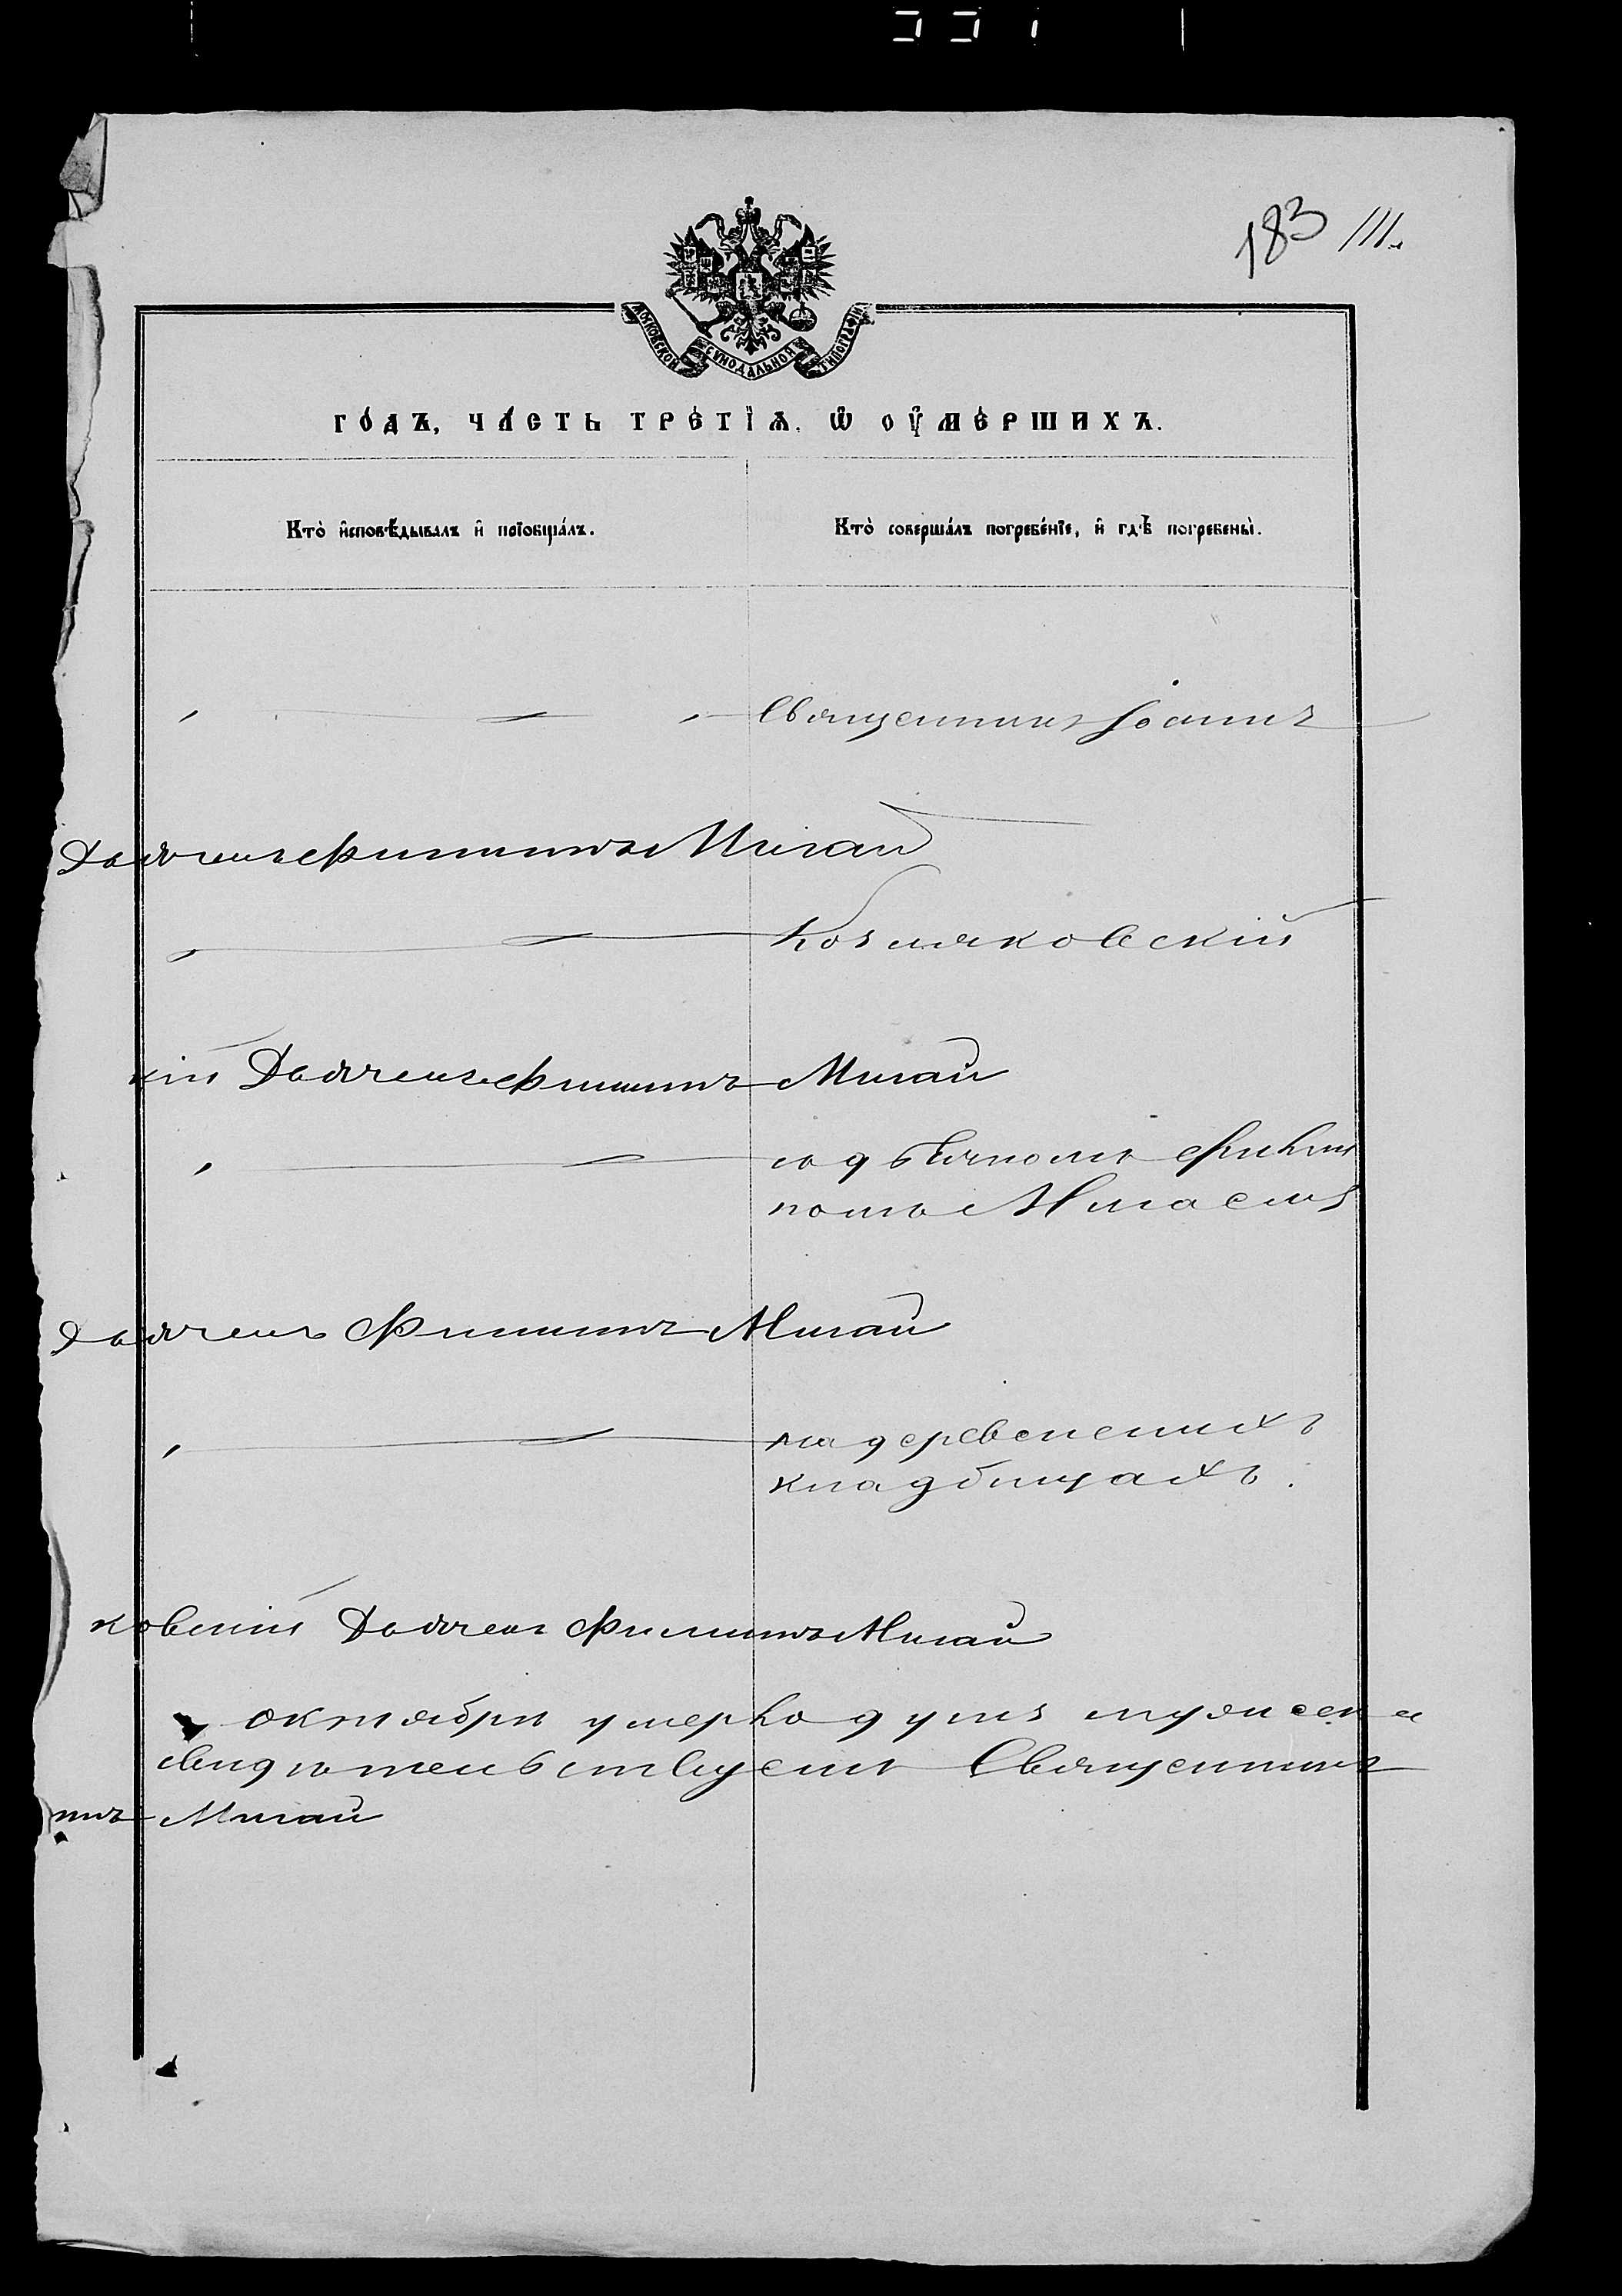 183 111.
МОСКОВСКОЙ СѴНОДАЛЬНОЙ ТИПОГРАФІИ
ГО́ДЪ, ЧА́СТЬ ТРЕ́ТІѦ, Ѡ҆ ОУ҆МЕ́РШИХЪ.
Кто̀ и҆сповѣ́дывалъ и҆ прїобща́лъ.
Кто̀ соверша́лъ погребе́нїе, и҆ гдѣ̀ погребены̀.
Священникъ Іоаннъ
Дьячекъ Филиппъ Мигай
Козмяковскій
кій Дьячекъ Филиппъ Мигай
съ дьячкомъ Филип
помъ Мигаемъ
Дьячекъ Филиппъ Мигай
на деревенскихъ
кладбищахъ.
ковскій Дьячекъ Филиппъ Мигай
октябрѣ умерло душъ мужеска
свидѣтельствуемъ Священникъ
ппъ Мигай